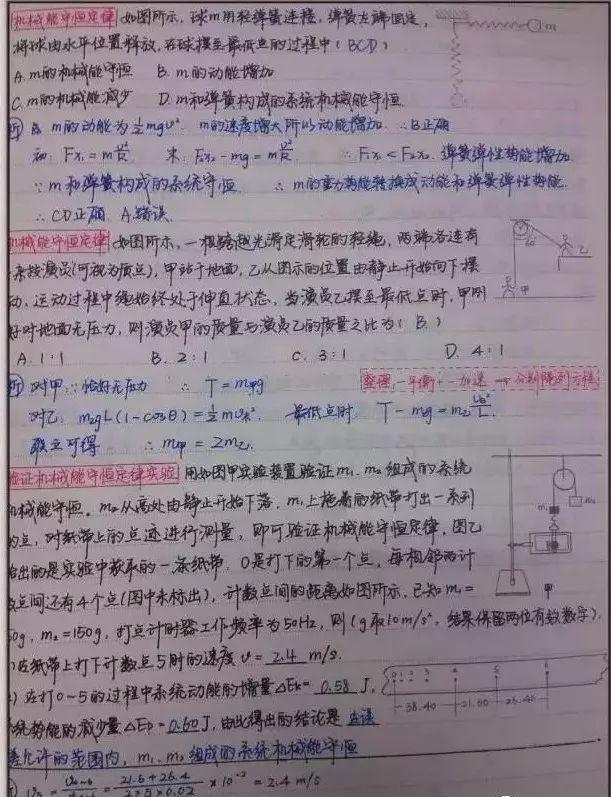 机械能守恒定律 如图所示,球m用轻弹簧连接,弹簧左端固定,
将球由水平位置释放,在球摆至最低点的过程中(BCD)
A. m的机械能守恒 B. m的动能增加
C. m的机械能减少 D. m和弹簧构成的系统机械能守恒
m的速度增大所以动能增加 ∴B正确
∴Fx₁<Fx₂. 弹簧弹性势能增加
∵m和弹簧构成的系统守恒 ∴m的重力势能转换成动能和弹簧弹性势能.
∴CD正确 A错误
机械能守恒定律 如图所示,一根跨越光滑定滑轮的轻绳,两端各连有
杂技演员(可视为质点),甲站于地面,乙从图示的位置由静止开始向下摆
动,运动过程中绳始终处于伸直状态,当演员乙摆至最低点时,甲刚
好对地面无压力,则演员甲的质量与演员乙的质量之比为(B.)
A. 1:1 B. 2:1 C. 3:1 D. 4:1
对甲:∵恰好无压力 ∴T=m甲g
对乙: m乙gL(1-cosθ)=½mv²
联立可得 ∴m甲=2m乙.
验证机械能守恒定律实验 用如图甲实验装置验证m₁、m₂组成的系统
机械能守恒。m₂从高处由静止开始下落,m₁上拖着的纸带打出一系列
的点,对纸带上的点迹进行测量,即可验证机械能守恒定律,图乙
给出的是实验中获取的一条纸带,0是打下的第一个点,每相邻两计
数点间还有4个点(图中未标出),计数点间的距离如图所示,已知m₁=
50g, m₂=150g, 打点计时器工作频率为50Hz, 则(g取10m/s²,结果保留两位有效数字).
)在纸带上打下计数点5时的速度v=2.4 m/s.
)在打0~5的过程中系统动能的增量ΔEk=0.58 J,
系统势能的减少量ΔEp=0.60J,由此得出的结论是 在误
差允许的范围内,m₁、m₂组成的系统机械能守恒
38.40 21.60 26.40
甲
= (21.6+26.4)/(2×5×0.02) ×10⁻² = 2.4 m/s